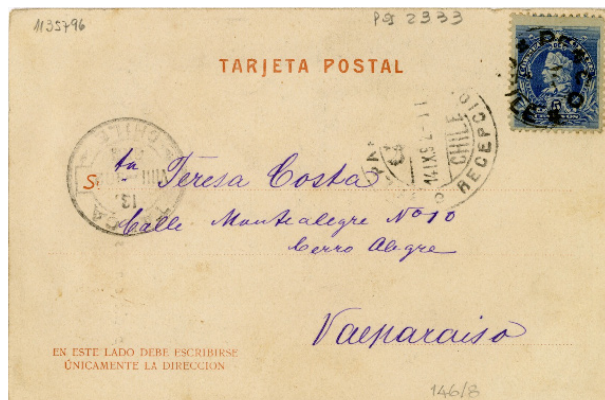 1135796
PJ 2333
TARJETA POSTAL
CHILE
CHILE
RECEPCIO
Sta Teresa Costa
Calle Montealegre No 10
Cerro Alegre
Valparaiso
EN ESTE LADO DEBE ESCRIBIRSE
ÚNICAMENTE LA DIRECCION
146/8